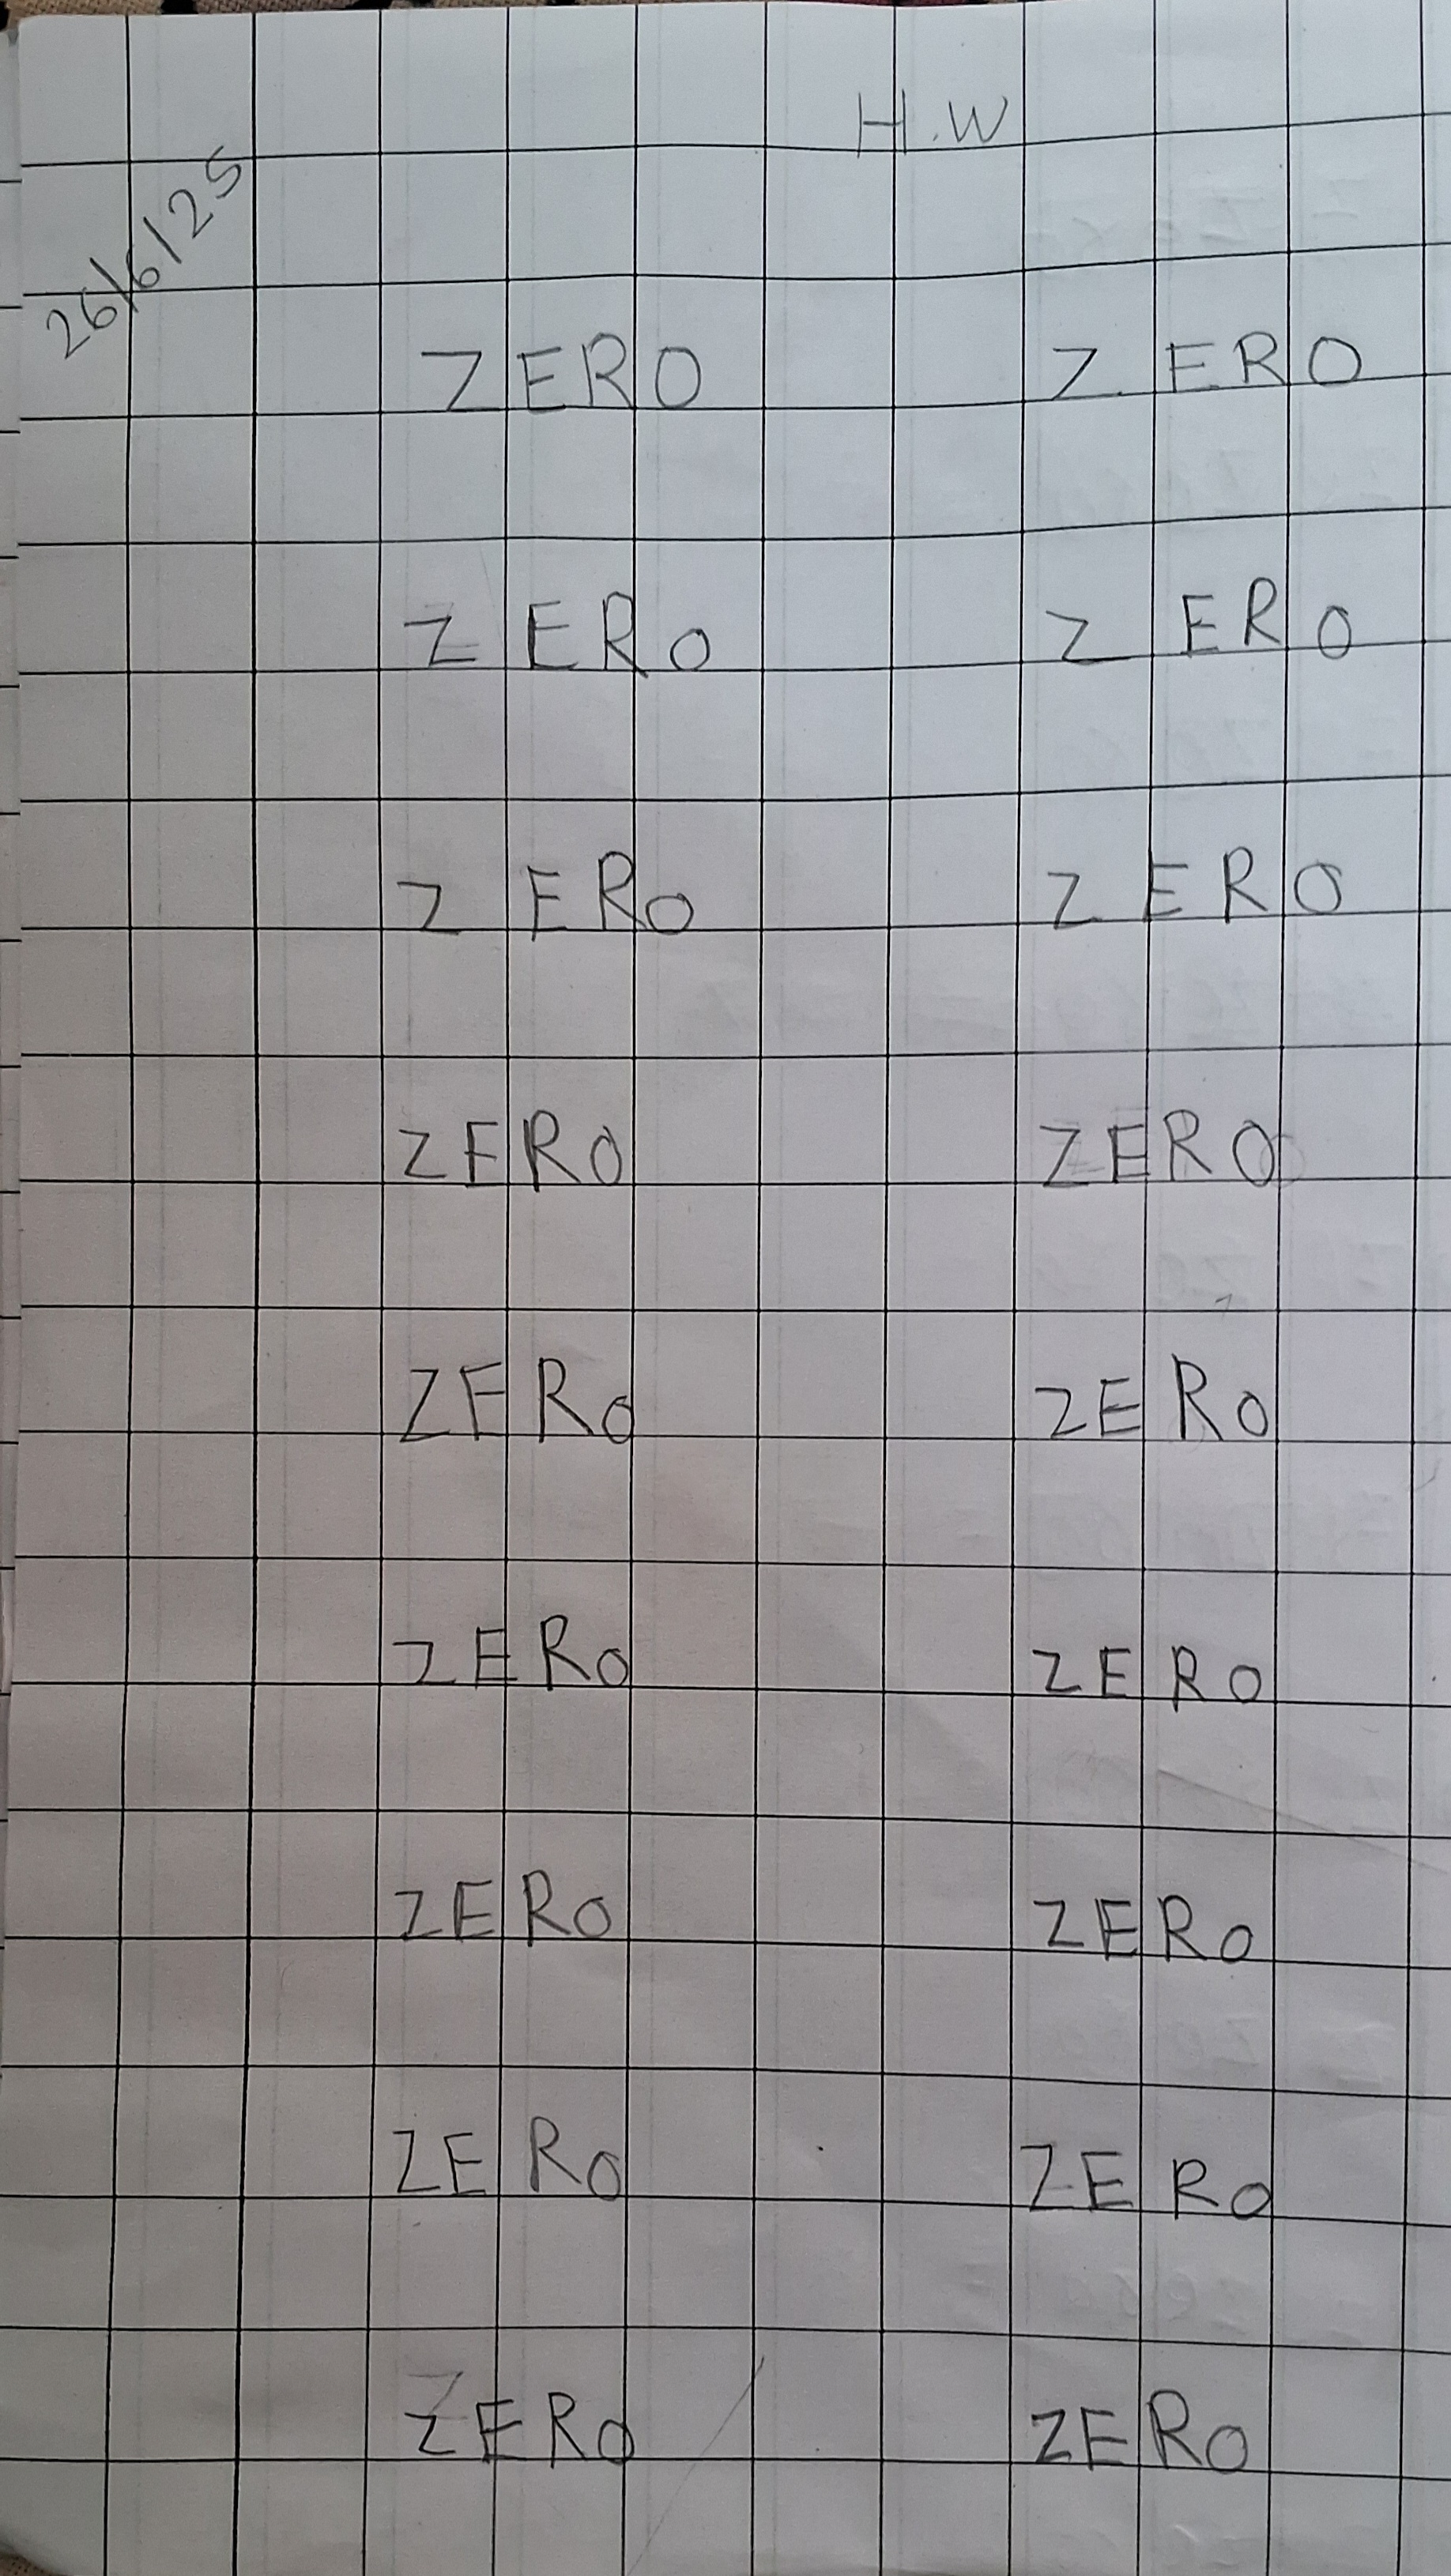 H.W
26/6/25
ZERO ZERO
ZERO ZERO
ZERO ZERO
ZERO ZERO
ZERO ZERO
ZERO ZERO
ZERO ZERO
ZERO ZERO
ZERO ZERO